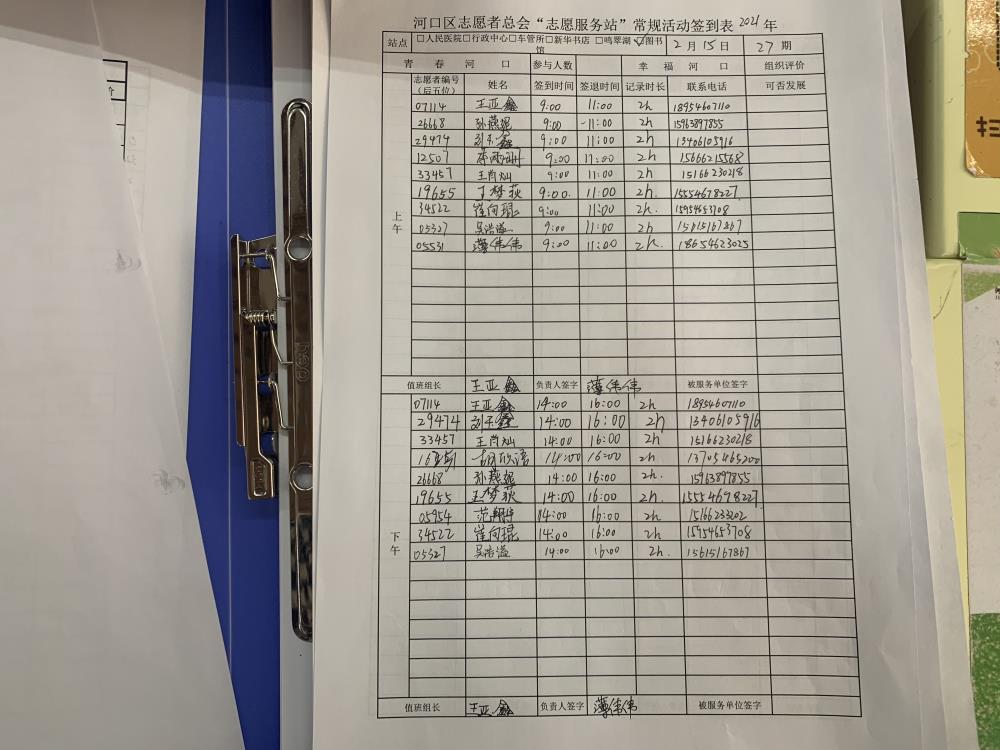 河口区志愿者总会“志愿服务站”常规活动签到表 2021年
站点 □人民医院□行政中心□车管所□新华书店 □鸣翠湖 ☑图书馆 2月15日 27期
青春河口 参与人数 幸福河口 组织评价
志愿者编号（后五位） 姓名 签到时间 签退时间 记录时长 联系电话 可否发展
上午
07114 王亚鑫 9:00 11:00 2h 18954607110
26668 孙燕妮 9:00 -11:00 2h 15963897855
29474 鑫 9:00 11:00 2h 13406105916
12507 9:00 11:00 2h 15666215568
33457 王肖灿 9:00 11:00 2h 15166230218
19655 王梦荻 9:00. 11:00 2h. 15554678227
34522 崔向琨 9:00 11:00 2h. 15954653708
05327 吴浩溢 9:00 11:00 2h 15615167867
05531 薄伟伟 9:00 11:00 2h. 18654623025
值班组长 王亚鑫 负责人签字 薄伟伟 被服务单位签字
下午
07114 王亚鑫 14:00 16:00 2h 18954607110
29474 鑫 14:00 16:00 2h 13406105916
33457 王肖灿 14:00 16:00 2h 15166230218
14:00 16:00 2h 13705465200
26668 孙燕妮 14:00 16:00 2h. 15963897855
19655 王梦荻 14:00 16:00 2h. 15554698227
05954 范 14:00 16:00 2h 15166233202
34522 崔向琨 14:00 16:00 2h 15954653708
05327 吴浩溢 14:00 16:00 2h. 15615167867
值班组长 王亚鑫 负责人签字 薄伟伟 被服务单位签字